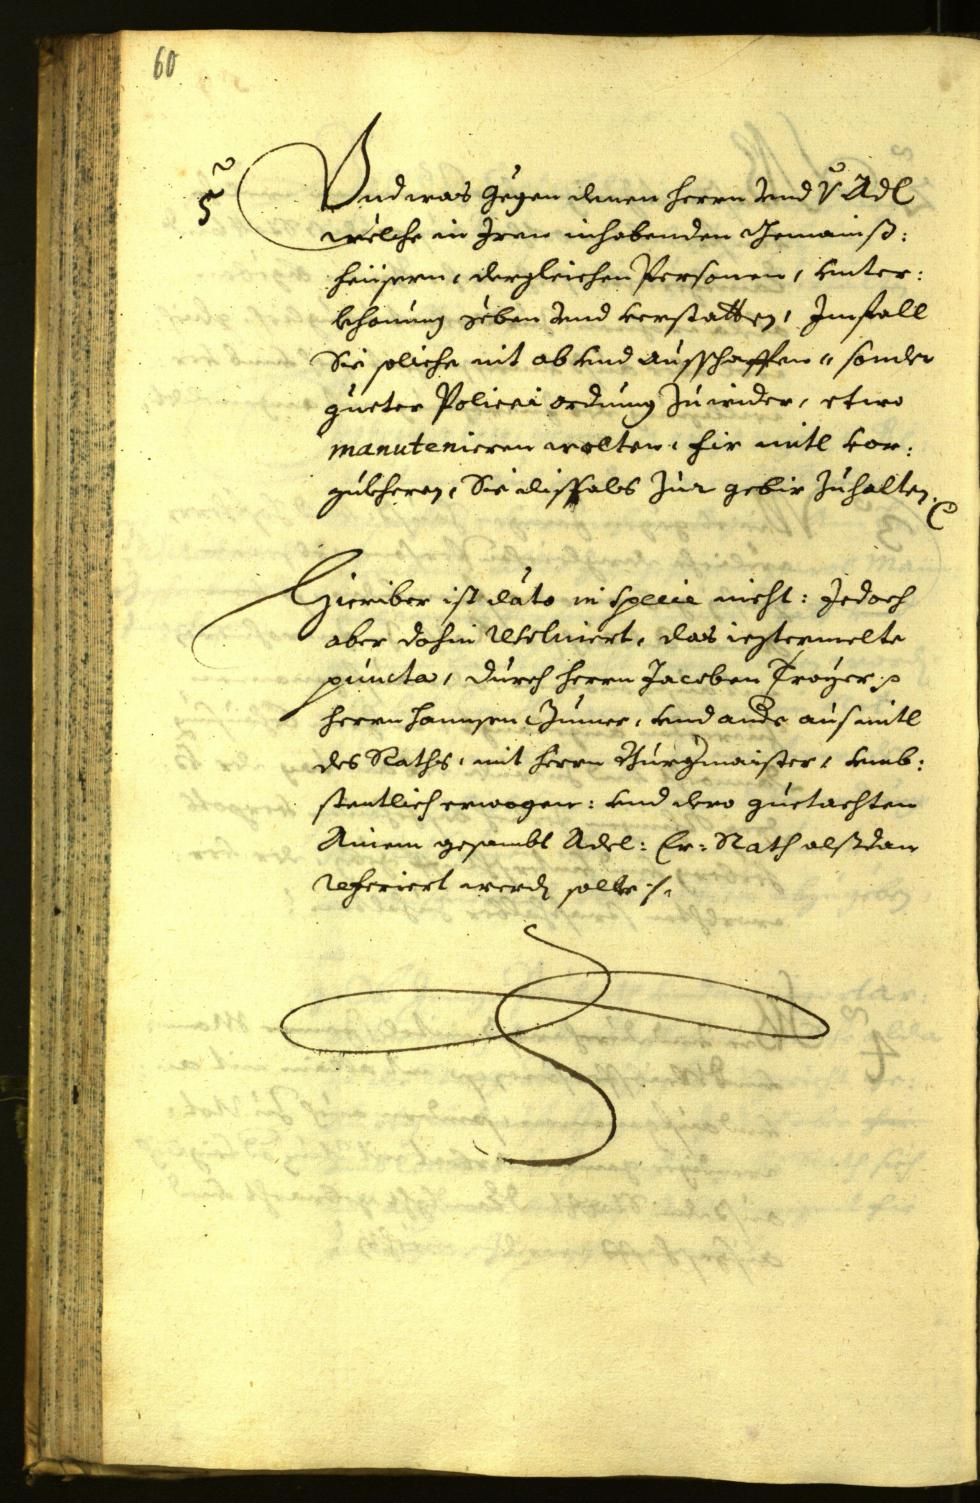 60
5
Und was gegen denen herrn und v: Adl
welche in Iren inhabenden Gemainß:
heüsern, dergleichen Personen, unter:
khomung geben und verstatten, Im fall
Sie soliche nit ab und ausschaffen, sonder
gueter Policei ordnung zuwider, etwo
manutenieren wolten, fir mitl vor:
zukheren, Sie dissfals zur gebir zuhalten.
Hieriber ist dato in specie nicht: Jedoch
aber dahin resolviert, das ieztermelte
puncta, durch herrn Jacoben Troyer
herrn Hannsen und andr aus mitl
des Raths, mit herrn Burgmaister, umb:
stentlich erwogen: und dero guetachten
Ainem gesambt Adel: Er: Rath alßdan
referiert werdn solle ./.